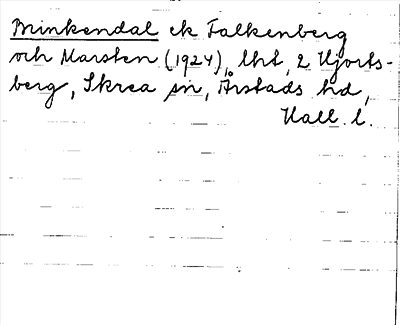 Minkendal ek Falkenberg
och Marsten (1924), lht, 2 Hjorts-
berg, Skrea sn, Årstads hd,
Hall. l.